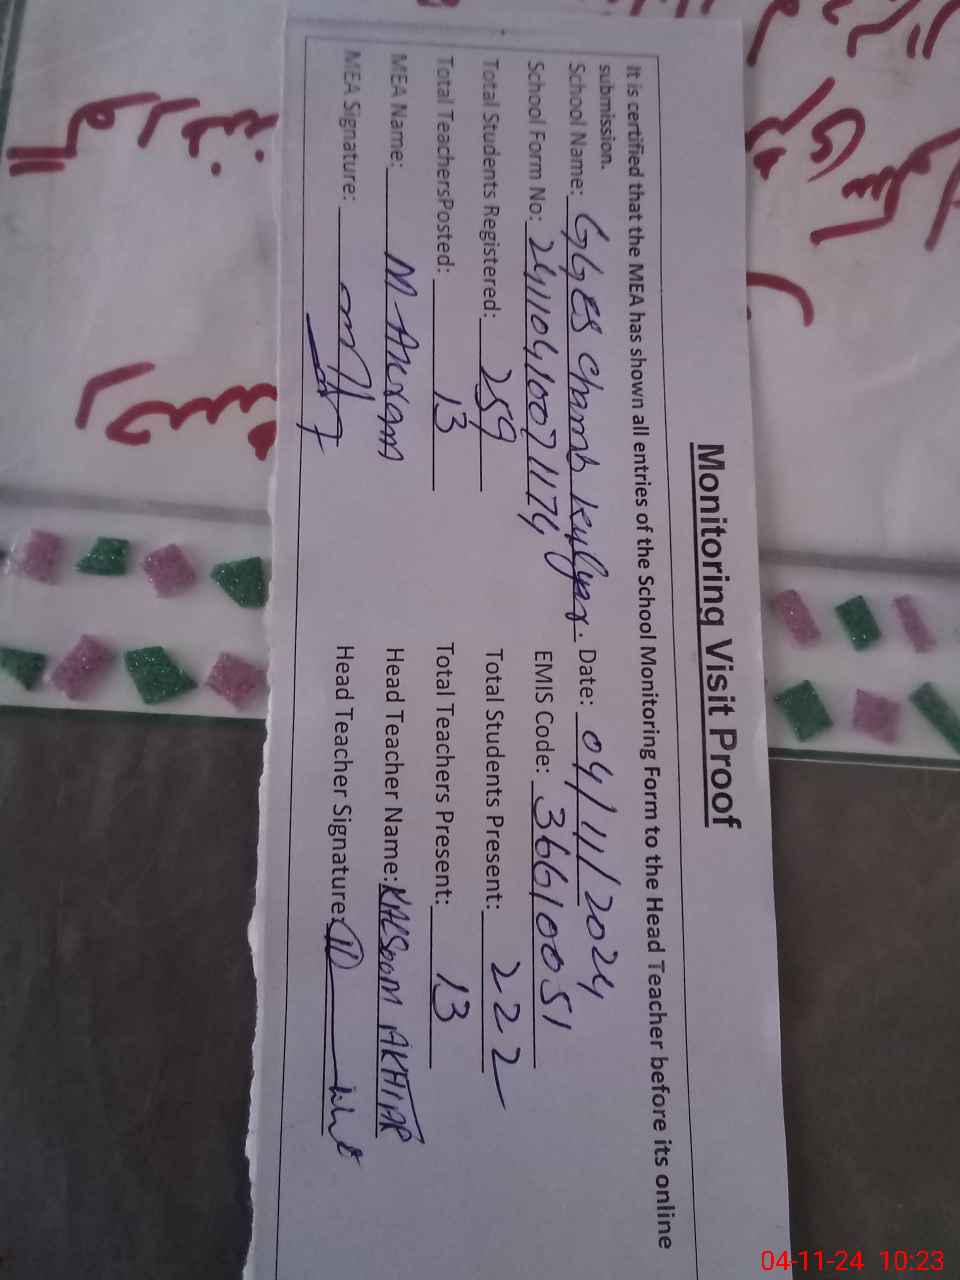 Monitoring Visit Proof
It is certified that the MEA has shown all entries of the School Monitoring Form to the Head Teacher before its online
submission.
School Name: GGES Chamb Kulyar. Date: 04/11/2024
School Form No: 241104100071174 EMIS Code: 36610051
Total Students Registered: 259 Total Students Present: 222
Total TeachersPosted: 13 Total Teachers Present: 13
MEA Name: M Akram Head Teacher Name: KALSOOM AKHTAR
MEA Signature: Head Teacher Signature:
04-11-24 10:23